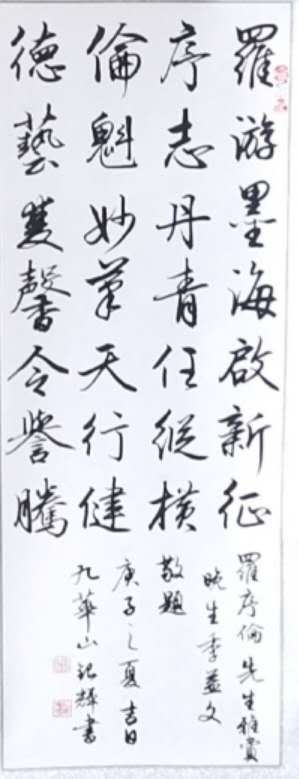 羅游墨海啟新征
序志丹青任縱横
倫魁妙筆天行健
德藝雙馨令譽騰
羅序倫先生雅賞
晚生季益文
敬題
庚子之夏吉日
九華山 輝書